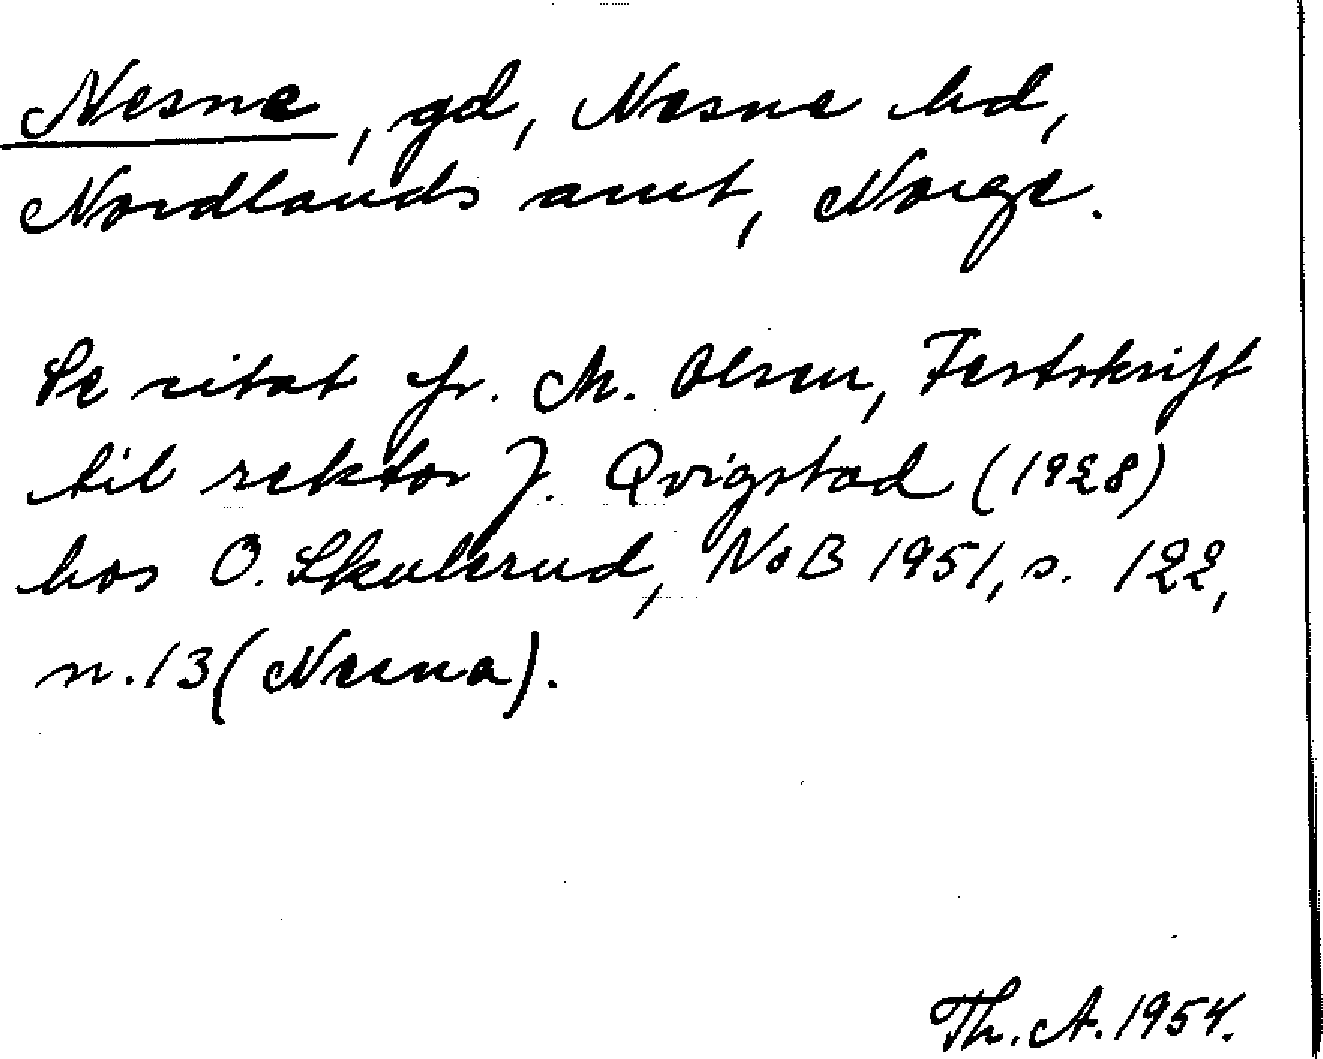 Nesne, gd, Nesne hd,
Nordlands amt, Norge.
Se citat fr. M. Olsen, Festskrift
til rektor J. Qvigstad (1928)
hos O. Skulerud, NoB 1951, s. 122,
n. 13 (Nesna).
Th. A. 1954.